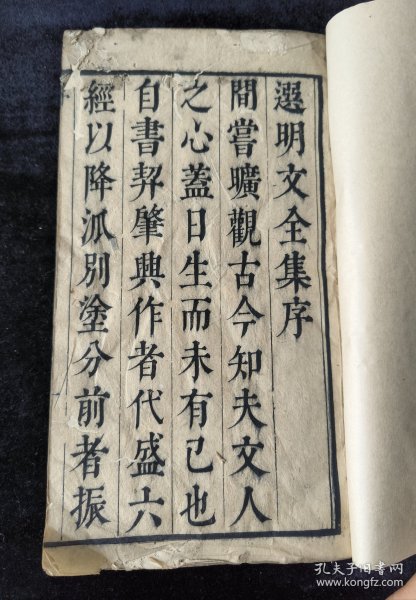 選明文全集序
間嘗曠觀古今知夫文人
之心蓋日生而未有已也
自書契肇興作者代盛六
經以降派別塗分前者振
孔夫子旧书网
www.kongfz.com